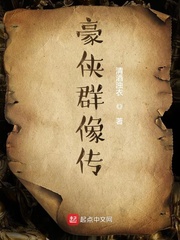 豪侠群像传
清酒庶衣 著
起点中文网